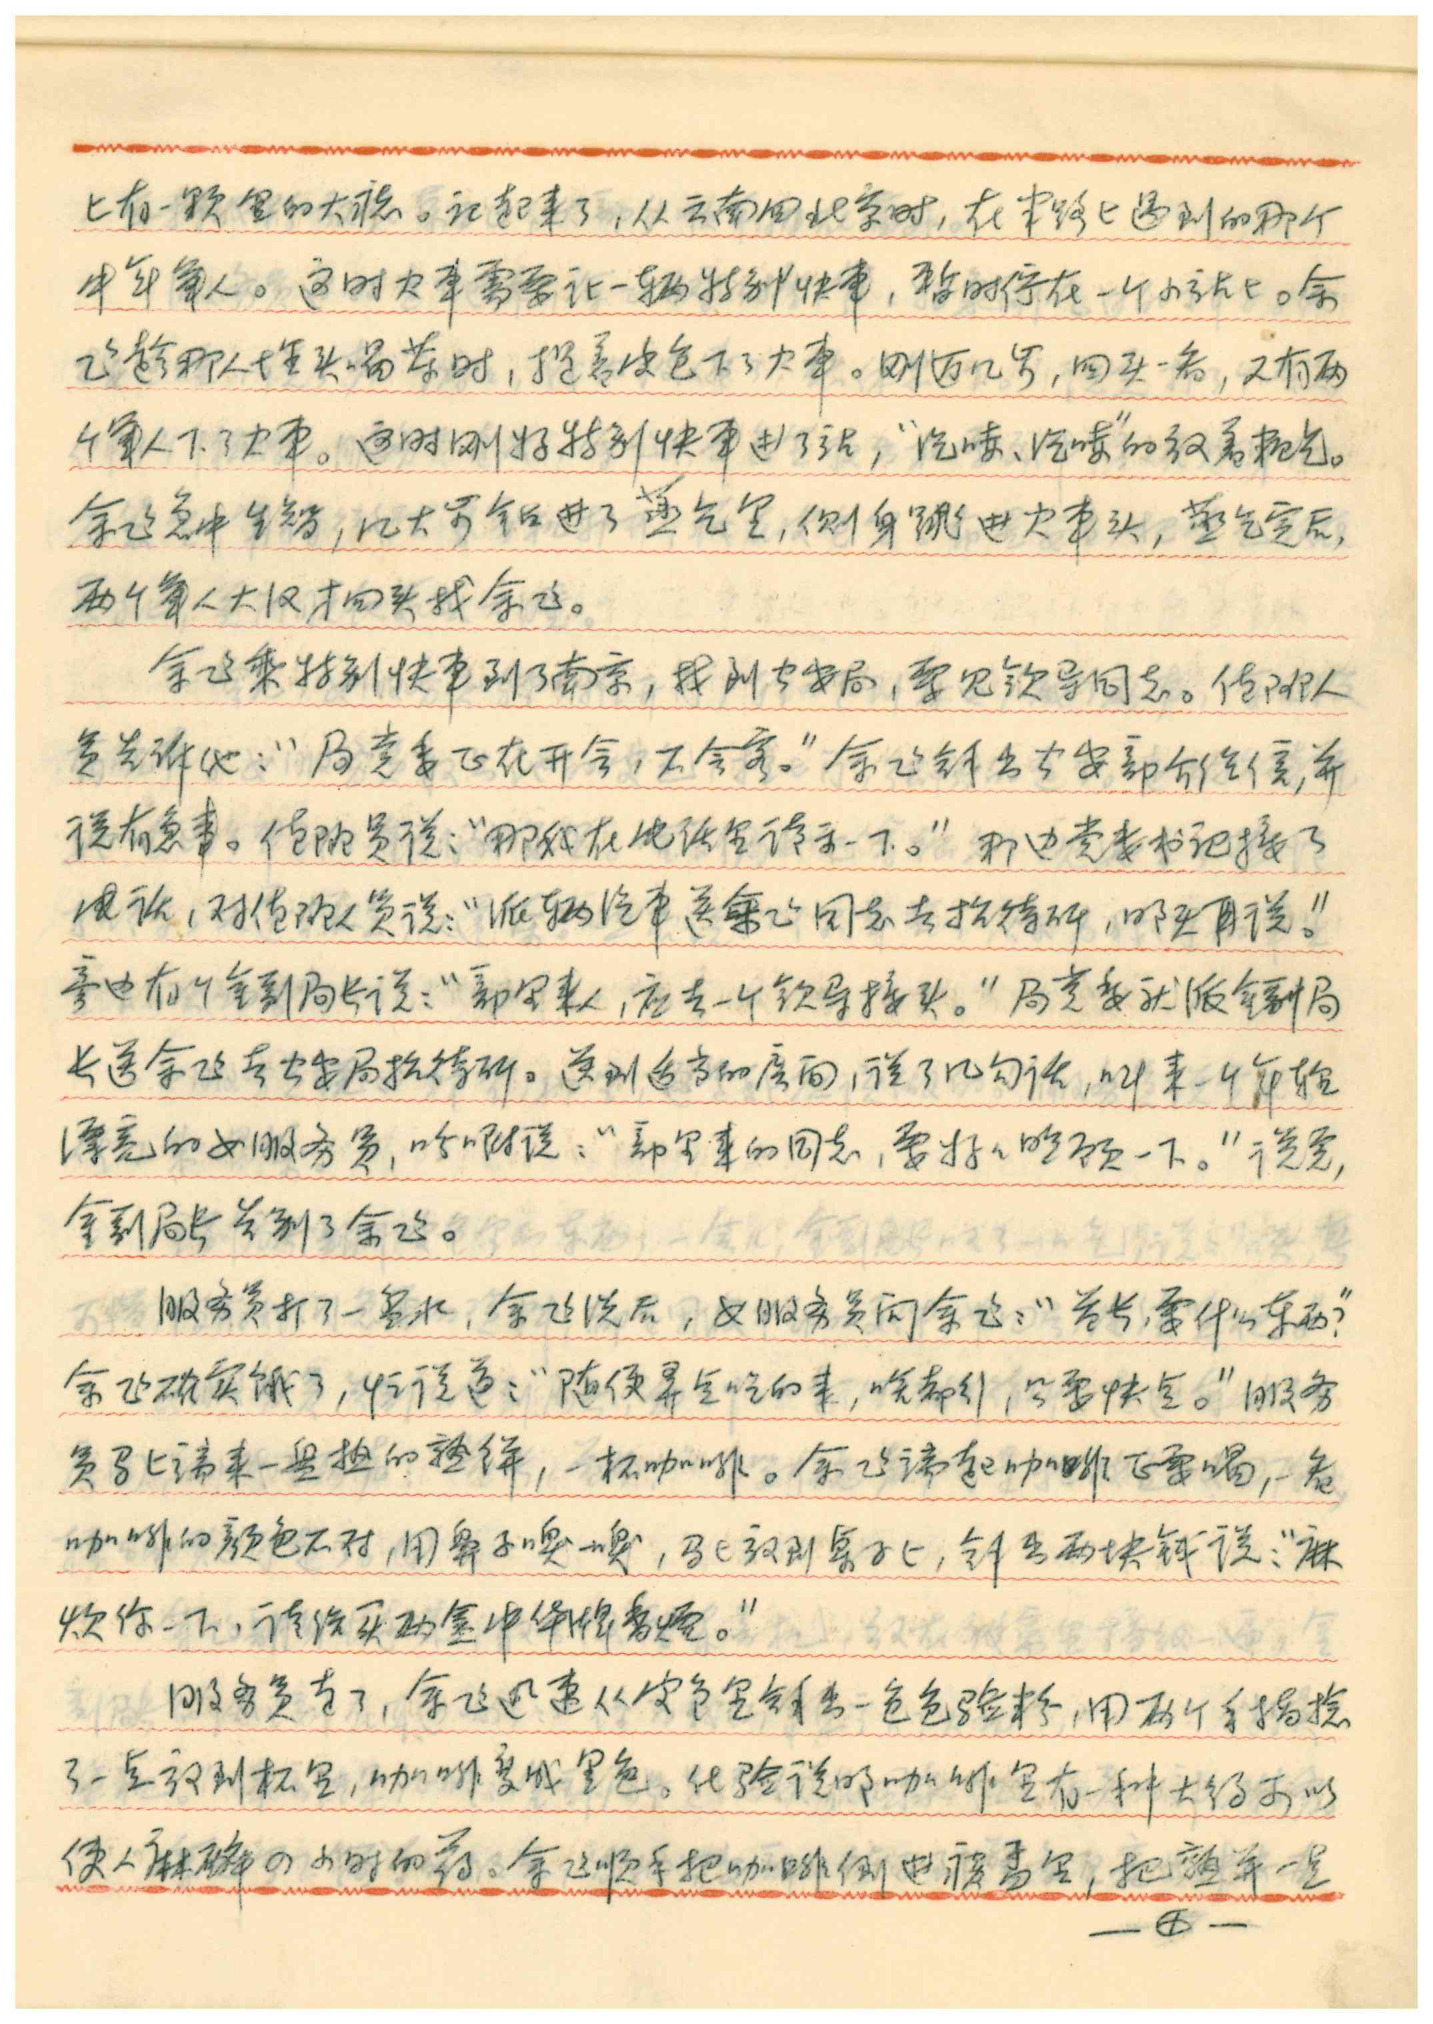 上有一颗黑的大痣。记起来了，从云南回北京时，在半路上遇到的那个
中年军人。这时火车需要让一辆特别快车，暂时停在一个小站上。余
飞趁那人埋头喝茶时，提着皮包下了火车。刚迈几步，回头一看，又有两
个军人下了火车。这时刚好特别快车进了站，“汽喽、汽喽”的放着粗气。
余飞急中生智，几大步钻进了蒸气里，侧身跳进火车头，蒸气完后，
两个军人大汉才回头找余飞。
余飞乘特别快车到了南京，找到公安局，要见领导同志。值班人
员告诉他：“局党委正在开会，不会客。”余飞拿出公安部介绍信，并
说有急事。值班员说：“那我在电话里请示一下。”那边党委书记接了
电话，对值班人员说：“派辆汽车送余飞同志去招待所，明天再说。”
旁边有个金副局长说：“部里来人，应去一个领导接头。”局党委就派金副局
长送余飞去公安局招待所。送到适当的房间，说了几句话，叫来一个年轻
漂亮的女服务员，吩咐说：“部里来的同志，要好好照顾一下。”说完，
金副局长告别了余飞。
服务员打了一盆水，余飞洗后，女服务员问余飞：“首长，要什么东西？”
余飞确实饿了，忙说道：“随便弄点吃的来，啥都行，只要快点。”服务
员马上端来一盘热的蛋饼，一杯咖啡。余飞端起咖啡正要喝，一看
咖啡的颜色不对，用鼻子嗅一嗅，马上放到桌子上，拿出两块钱说：“麻
烦你一下，请给买两盒中华牌香烟。”
服务员走了，余飞迅速从皮包里拿出一包包验粉，用两个手指捻
了一点放到杯里，咖啡变成黑色。化验说明咖啡里有一种大约可以
使人麻醉四小时的药。余飞顺手把咖啡倒进痰盂里，把蛋并一点
—五—